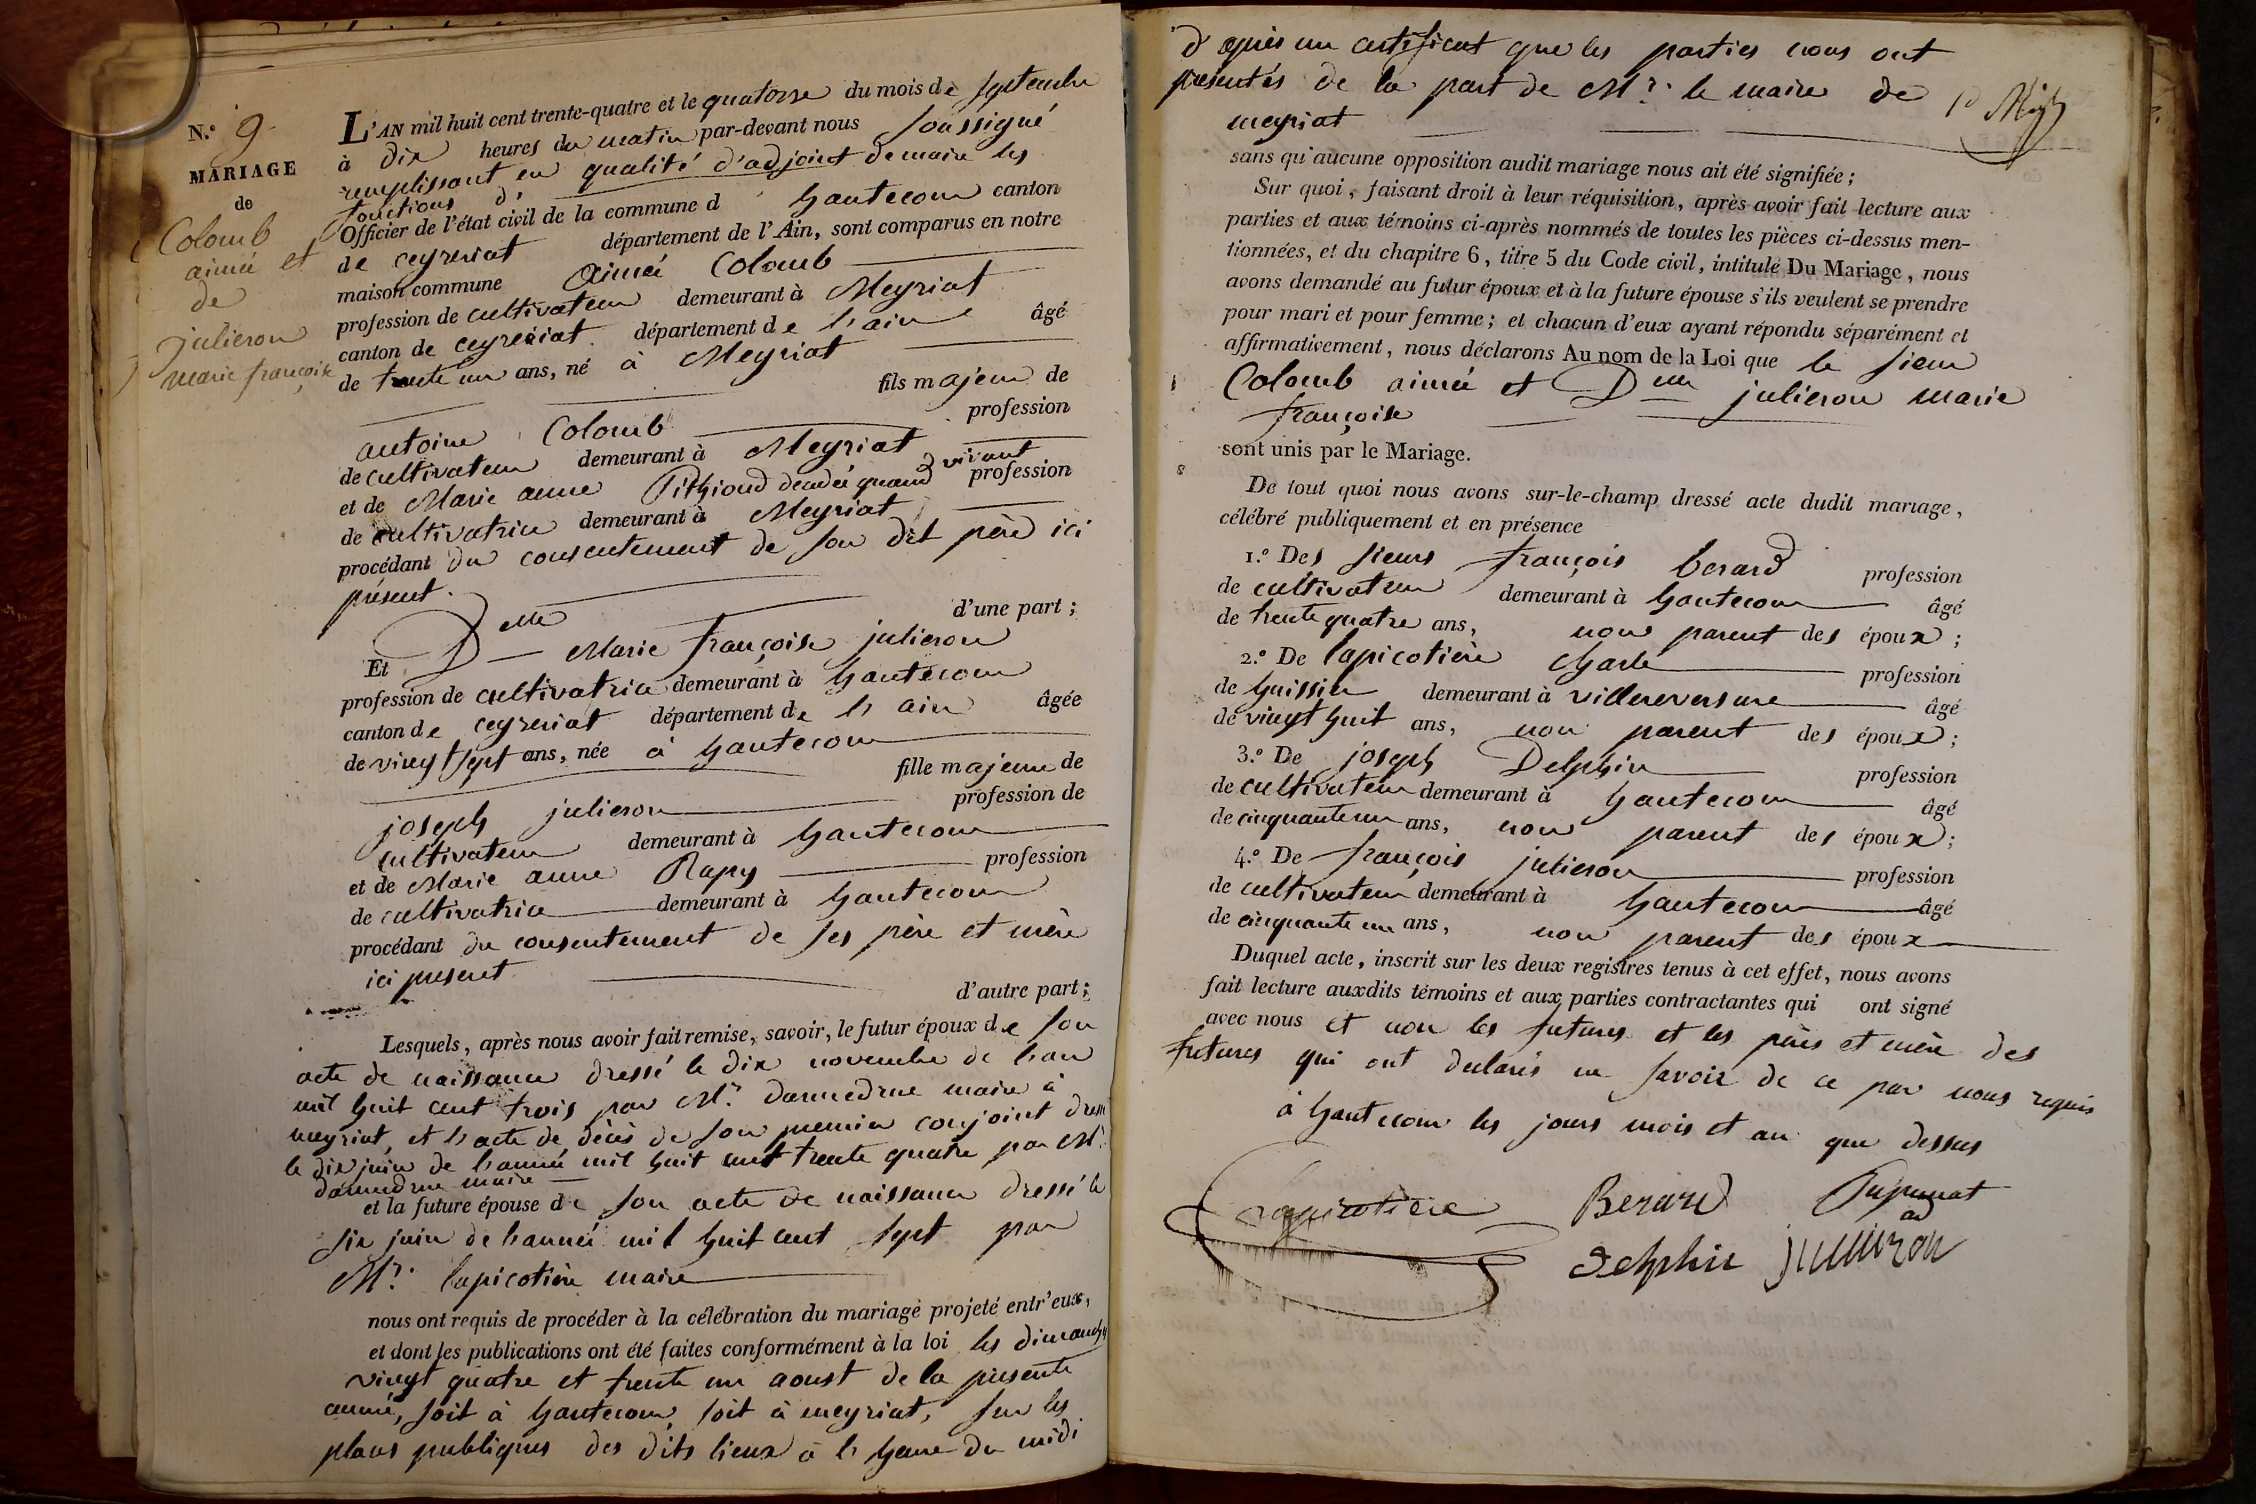 N.º 9.
MARIAGE
de
Colomb
aimé et
de
julieron
marie françoise
L'AN mil huit cent trente-quatre et le quatorze du mois de septembre
à dix heures du matin par-devant nous soussigné
remplissant en qualité d'adjoint de maire les
fonctions d'
Officier de l'état civil de la commune d hautecour canton
de ceyzeriat département de l'Ain, sont comparus en notre
maison commune aimé Colomb
profession de cultivateur demeurant à Meyriat
canton de ceyzeriat département de l'ain âgé
de trente un ans, né à Meyriat
fils majeur de
antoine Colomb profession
de cultivateur demeurant à Meyriat
et de Marie anne Pithioud décédée quand vivant profession
de cultivatrice demeurant à Meyriat
procédant du consentement de son dit père ici
présent.
d'une part ;
Et Delle Marie françoise julieron
profession de cultivatrice demeurant à hautecour
canton de ceyzeriat département de l'ain âgée
de vingt sept ans, née à hautecour
fille majeure de
joseph julieron profession de
cultivateur demeurant à hautecour
et de Marie anne Rapy profession
de cultivatrice demeurant à hautecour
procédant du consentement de ses père et mère
ici present
d'autre part ;
Lesquels, après nous avoir fait remise, savoir, le futur époux de son
acte de naissance dressé le dix novembre de l'an
mil huit cent trois par Mr. darmedrue maire à
meyriat, et l'acte de décès de son premier conjoint dressé
le dix juin de l'année mil huit cent trente quatre par Mr.
darmedrue maire
et la future épouse de son acte de naissance dressé le
six juin de l'année mil huit cent sept par
Mr. lapicotière maire
nous ont requis de procéder à la célébration du mariage projeté entr'eux,
et dont les publications ont été faites conformément à la loi les dimanches
vingt quatre et trente un aoust de la présente
année, soit à hautecour, soit à meyriat, sur les
places publiques des dits lieux à l'heure du midi
d'après un certificat que les parties nous ont
présentés de la part de Mr. le maire de
meyriat
sans qu'aucune opposition audit mariage nous ait été signifiée ;
Sur quoi, faisant droit à leur réquisition, après avoir fait lecture aux
parties et aux témoins ci-après nommés de toutes les pièces ci-dessus men-
tionnées, et du chapitre 6, titre 5 du Code civil, intitulé Du Mariage, nous
avons demandé au futur époux et à la future épouse s'ils veulent se prendre
pour mari et pour femme ; et chacun d'eux ayant répondu séparément et
affirmativement, nous déclarons Au nom de la Loi que le sieur
Colomb aimé et Delle julieron marie
françoise
sont unis par le Mariage.
De tout quoi nous avons sur-le-champ dressé acte dudit mariage,
célébré publiquement et en présence
1.º Des sieurs françois berard profession
de cultivateur demeurant à hautecour âgé
de trente quatre ans, non parent des époux ;
2.º De lapicotière charle profession
de huissier demeurant à villereversure âgé
de vingt huit ans, non parent des époux ;
3.º De joseph Delphin profession
de cultivateur demeurant à hautecour âgé
de cinquante un ans, non parent des époux ;
4.º De françois julieron profession
de cultivateur demeurant à hautecour âgé
de cinquante un ans, non parent des époux
Duquel acte, inscrit sur les deux registres tenus à cet effet, nous avons
fait lecture auxdits témoins et aux parties contractantes qui ont signé
avec nous et non les futures et les père et mère des
futures qui ont declarés ne savoir de ce par nous requis
à hautecour les jours mois et an que dessus
Lapicotière Berard
Delphin julliron